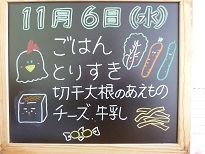 11月6日(水)
ごはん
とりすき
切干大根のあえもの
チーズ.牛乳